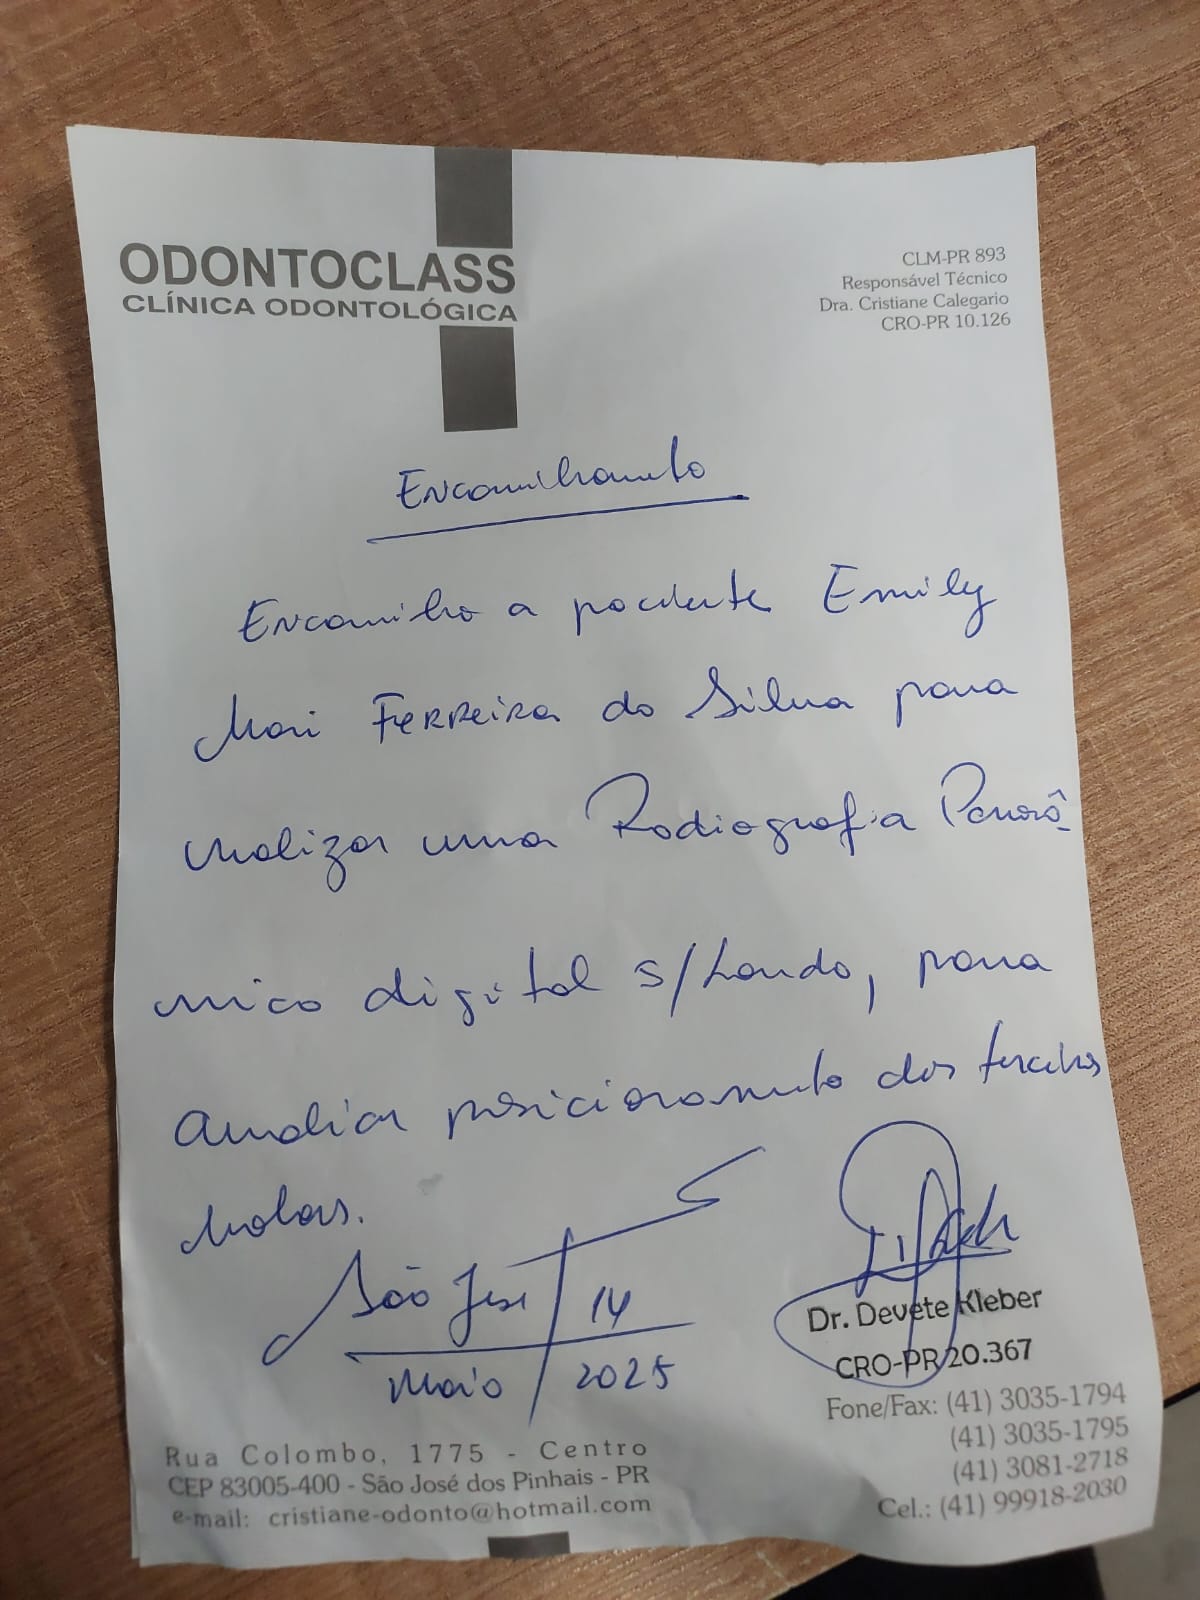 ODONTOCLASS
CLÍNICA ODONTOLÓGICA
CLM-PR 893
Responsável Técnico
Dra. Cristiane Calegario
CRO-PR 10.126
Encaminhamento
Encaminho a paciente Emily
Mari Ferreira da Silva para
realizar uma Radiografia Panorâ
mica digital s/laudo, para
avaliar posicionamento dos terceiros
molares.
São José 14
Maio 2025
Dr. Devete Kleber
CRO-PR 20.367
Fone/Fax: (41) 3035-1794
(41) 3035-1795
(41) 3081-2718
Cel.: (41) 99918-2030
Rua Colombo, 1775 - Centro
CEP 83005-400 - São José dos Pinhais - PR
e-mail: cristiane-odonto@hotmail.com